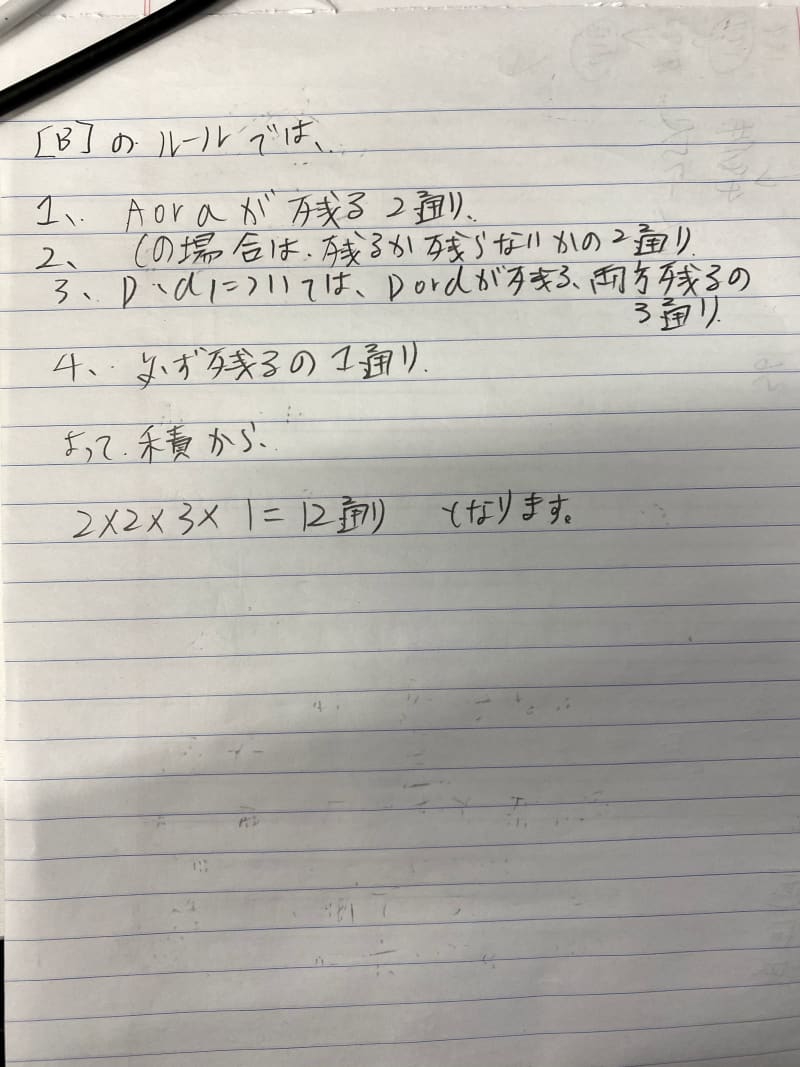 [B]のルールでは、
1、 A or a が残る 2通り、
2、 Cの場合は、残るか残らないかの2通り
3、 D、dについては、D or d が残る、両方残るの
3通り
4、 必ず残るの1通り.
よって、積から、
2×2×3×1=12通り となります。